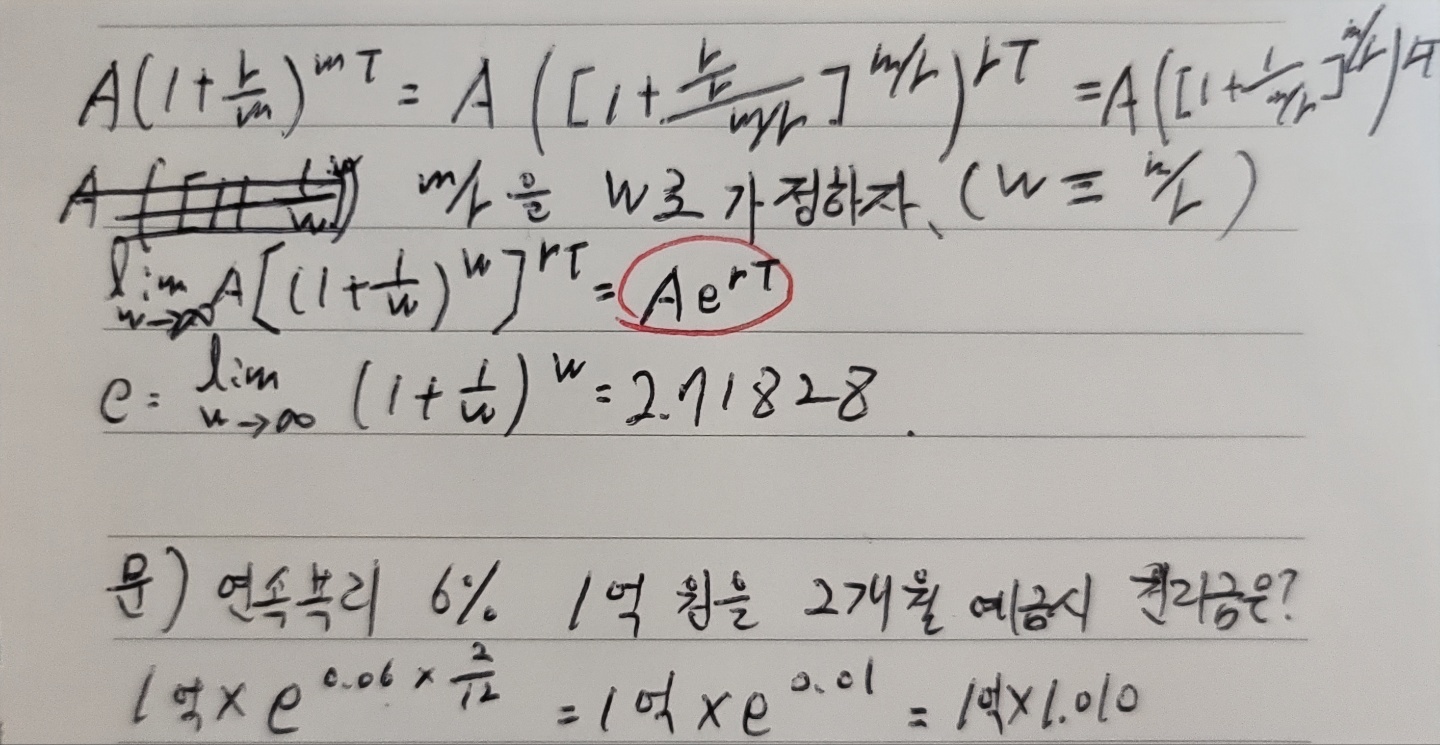 A(1+r/m)^mT = A([1+(r/r)/(m/r)]^m/r)^rT = A([1+1/(m/r)]^m/r)^rT
m/r을 W로 가정하자. (W ≡ m/r)
lim w→∞ A[(1+1/w)^w]^rT = Ae^rT
e = lim w→∞ (1+1/w)^w = 2.71828.
문) 연속복리 6% 1억 원을 2개월 예금시 원리금은?
1억×e^0.06×2/12 = 1억×e^0.01 = 1억×1.010